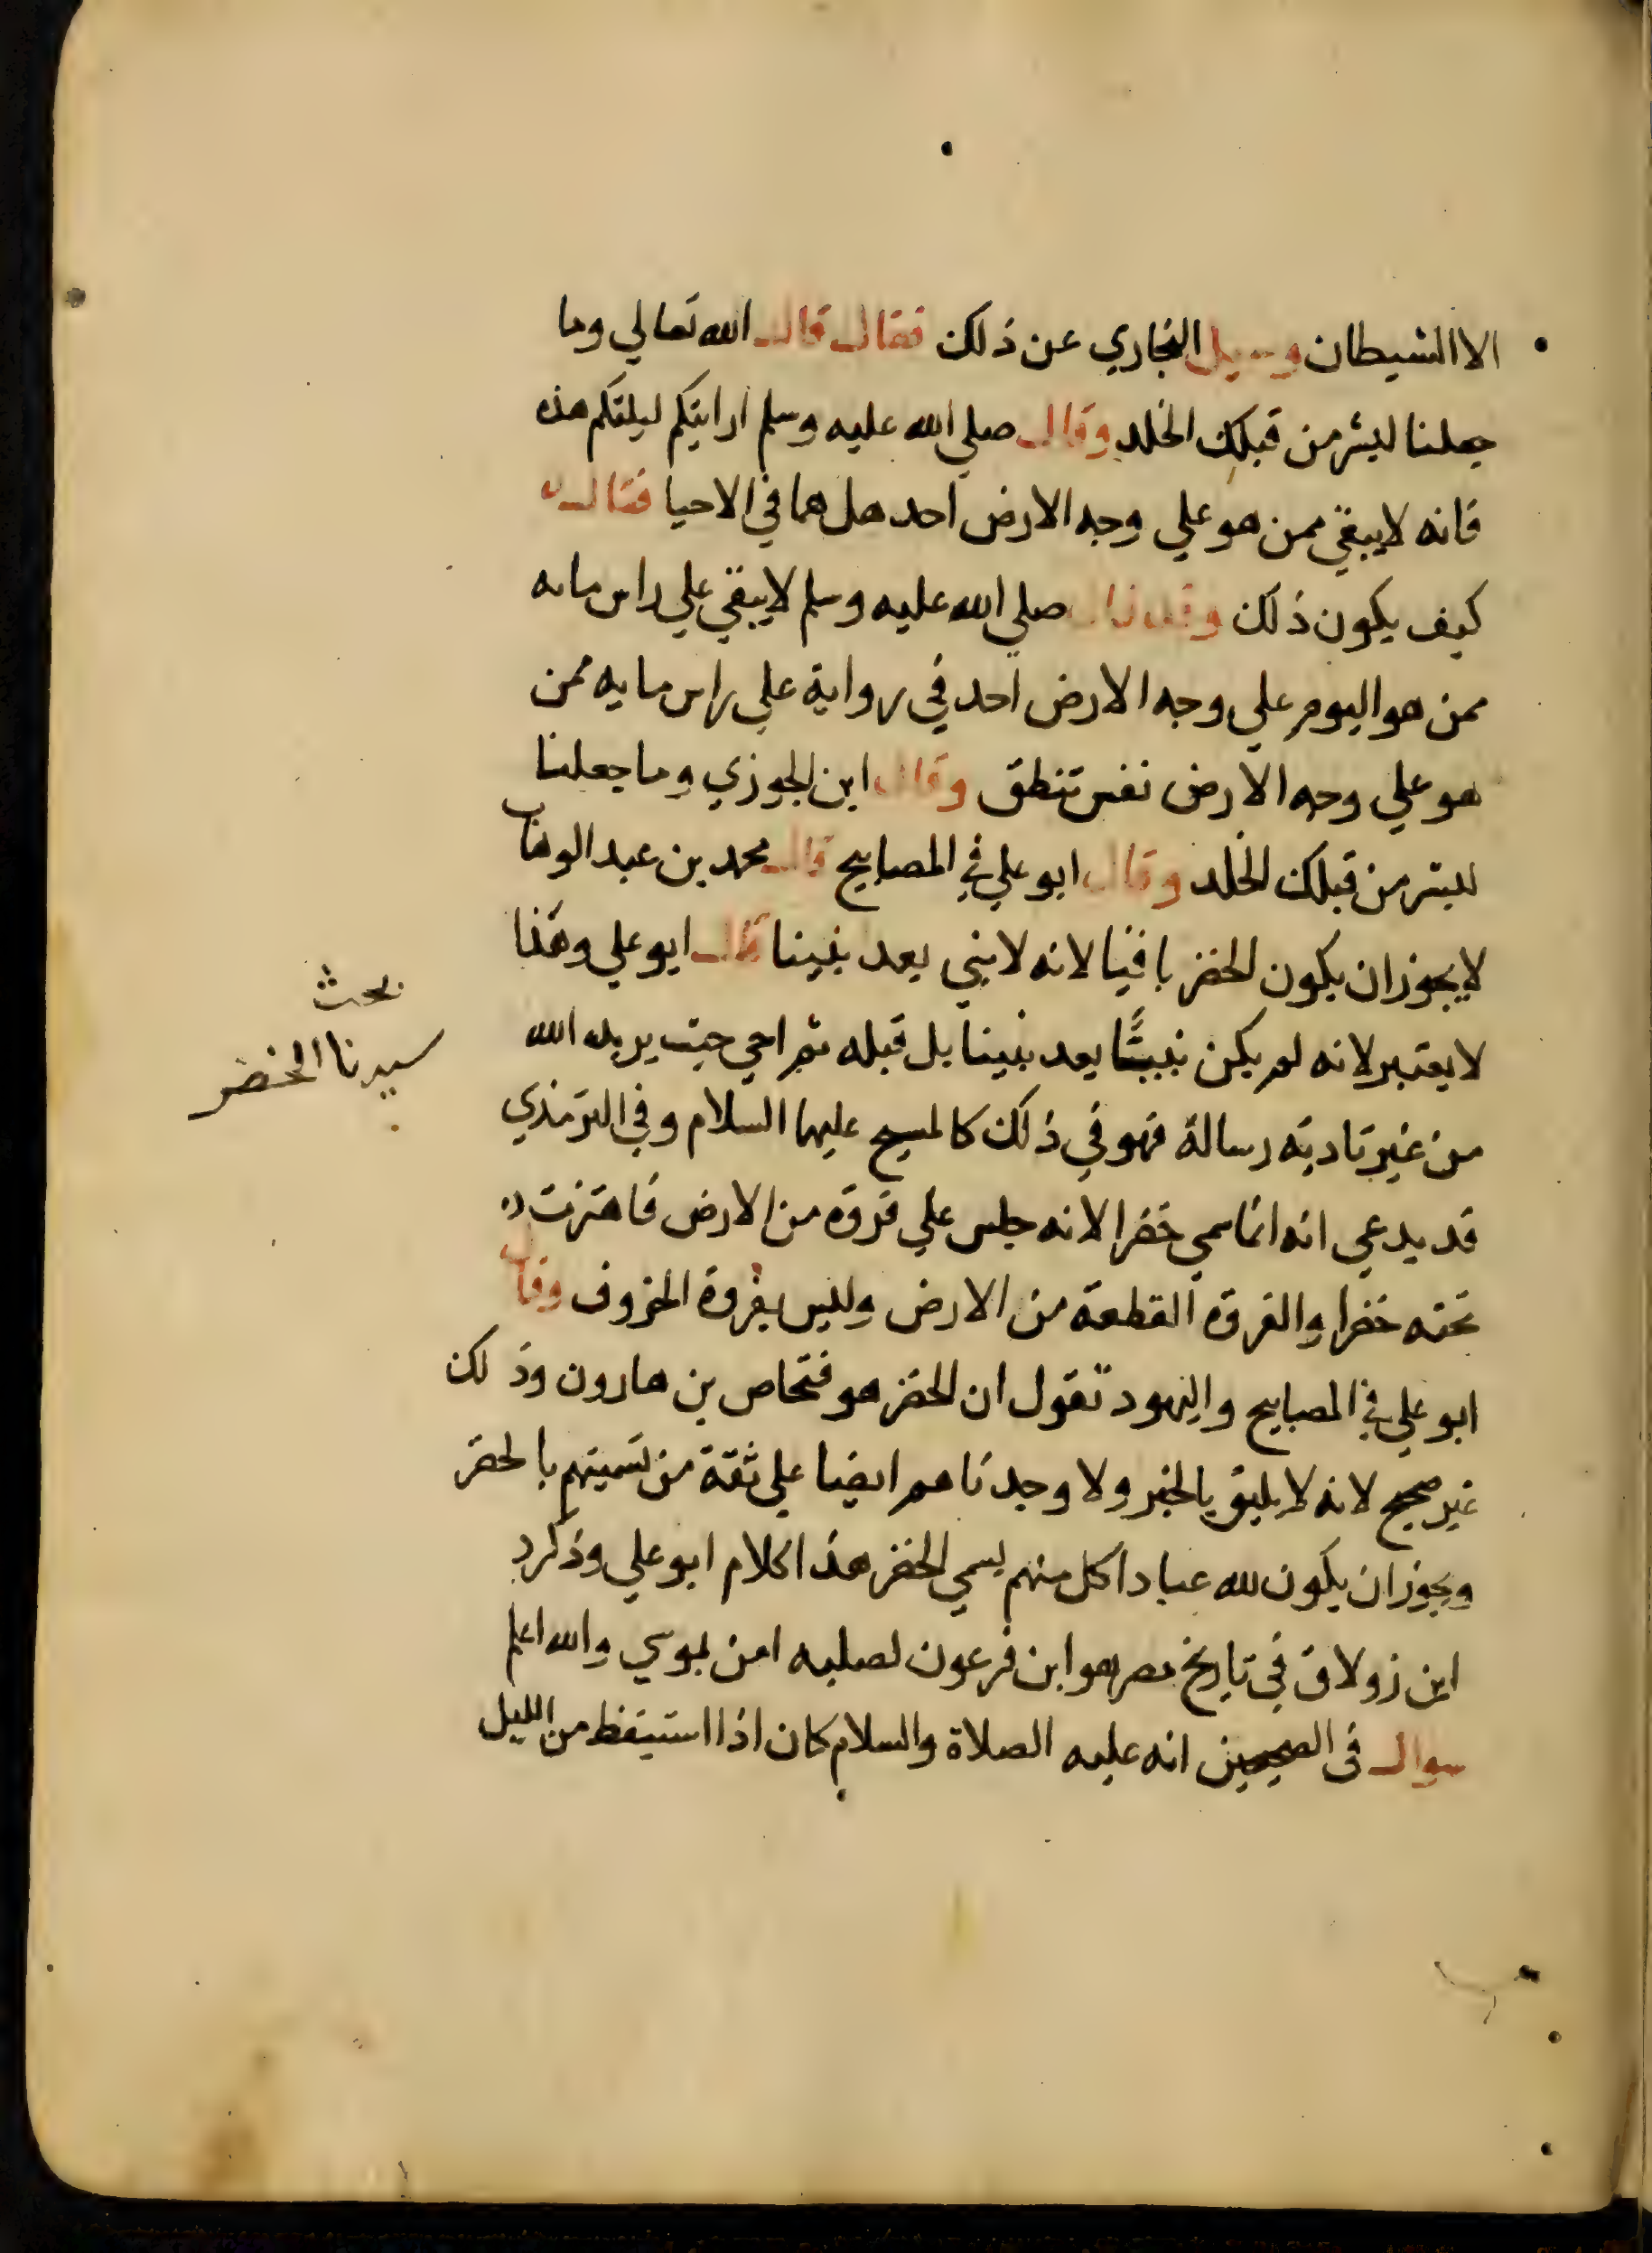 الا الشيطان وسيل البخاري عن ذلك فقال قال الله تعالي وما
جعلنا لبشر من قبلك الخلد وقال صلي الله عليه وسلم ارايتكم ليلتكم هذه
فانه لا يبقي ممن هو علي وجه الارض احد هل هما في الاحيا فقال
كيف يكون ذلك وقد قال صلي الله عليه وسلم لا يبقي علي راس مايه
ممن هو اليوم علي وجه الارض احد في رواية علي راس مايه ممن
هو علي وجه الارض نفس تنطق وقال ابن الجوزي وما جعلنا
لبشر من قبلك الخلد وقال ابو علي في المصابيح قال محمد بن عبد الوهاب
لا يجوز ان يكون الخضر باقيا لانه لا نبي بعد نبينا قال ابو علي وهذا
لا يعتبر لانه لم يكن نبيا بعد نبينا بل قبله ثم احي حيث يريد الله
من غير تادية رسالة فهو في ذلك كالمسيح عليهما السلام وفي الترمذي
قد يدعي انه انما سمي خضرا لانه جلس علي فروة من الارض فاهتزت
تحته خضرا والفروة القطعة من الارض وليس بفروة الخروف وقال
ابو علي في المصابيح واليهود تقول ان الخضر هو فنحاص بن هارون وذلك
غير صحيح لانه لا يليق بالخبر ولا وجدناهم ايضا علي ثقة من تسميتهم بالخضر
ويجوز ان يكون لله عبادا كل منهم يسمي الخضر هذا كلام ابو علي وذكر
ابن زولاق في تاريخ مصر هو ابن فرعون لصلبه امن بموسي والله اعلم
سوال في الصحيحين انه عليه الصلاة والسلام كان اذا استيقظ من الليل
بحث
سيدنا الخضر